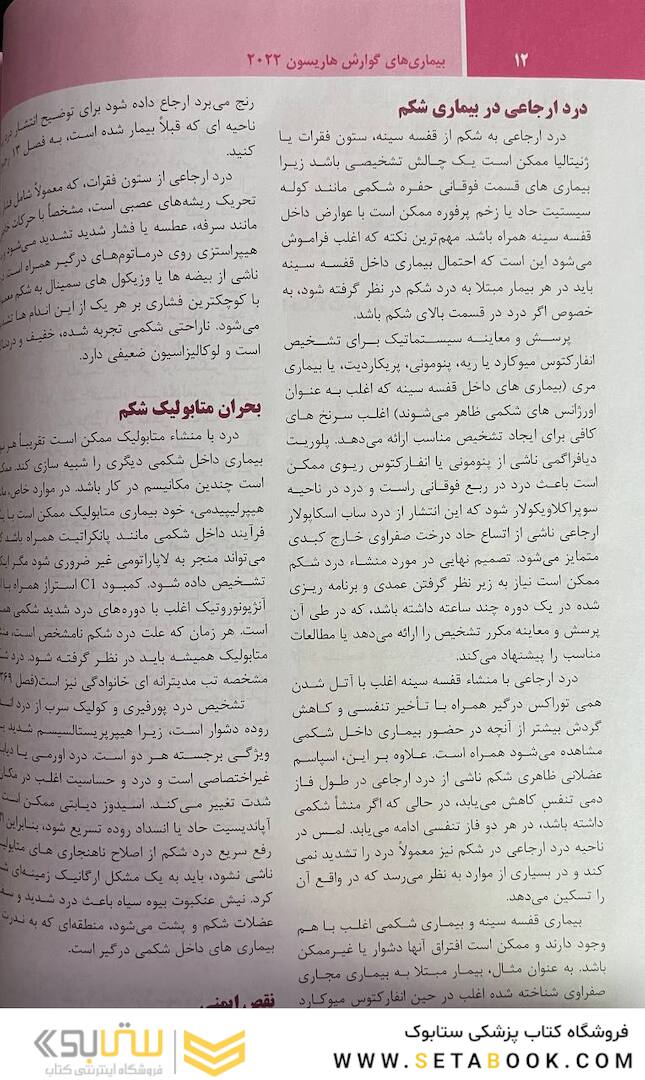 ۱۲
بیماری‌های گوارش هاریسون ۲۰۲۲
درد ارجاعی در بیماری شکم
درد ارجاعی به شکم از قفسه سینه، ستون فقرات یا
ژنیتالیا ممکن است یک چالش تشخیصی باشد زیرا
بیماری های قسمت فوقانی حفره شکمی مانند کوله
سیستیت حاد یا زخم پرفوره ممکن است با عوارض داخل
قفسه سینه همراه باشد. مهم‌ترین نکته که اغلب فراموش
می‌شود این است که احتمال بیماری داخل قفسه سینه
باید در هر بیمار مبتلا به درد شکم در نظر گرفته شود، به
خصوص اگر درد در قسمت بالای شکم باشد.
پرسش و معاینه سیستماتیک برای تشخیص
انفارکتوس میوکارد یا ریه، پنومونی، پریکاردیت، یا بیماری
مری (بیماری های داخل قفسه سینه که اغلب به عنوان
اورژانس های شکمی ظاهر می‌شوند) اغلب سرنخ های
کافی برای ایجاد تشخیص مناسب ارائه می‌دهد. پلوریت
دیافراگمی ناشی از پنومونی یا انفارکتوس ریوی ممکن
است باعث درد در ربع فوقانی راست و درد در ناحیه
سوپراکلاویکولار شود که این انتشار از درد ساب اسکاپولار
ارجاعی ناشی از اتساع حاد درخت صفراوی خارج کبدی
متمایز می‌شود. تصمیم نهایی در مورد منشاء درد شکم
ممکن است نیاز به زیر نظر گرفتن عمدی و برنامه ریزی
شده در یک دوره چند ساعته داشته باشد، که در طی آن
پرسش و معاینه مکرر تشخیص را ارائه می‌دهد یا مطالعات
مناسب را پیشنهاد می‌کند.
درد ارجاعی با منشاء قفسه سینه اغلب با آتل شدن
همی توراکس درگیر همراه با تأخیر تنفسی و کاهش
گردش بیشتر از آنچه در حضور بیماری داخل شکمی
مشاهده می‌شود همراه است. علاوه بر این، اسپاسم
عضلانی ظاهری شکم ناشی از درد ارجاعی در طول فاز
دمی تنفس کاهش می‌یابد، در حالی که اگر منشأ شکمی
داشته باشد، در هر دو فاز تنفسی ادامه می‌یابد. لمس در
ناحیه درد ارجاعی در شکم نیز معمولاً درد را تشدید نمی
کند و در بسیاری از موارد به نظر می‌رسد که در واقع آن
را تسکین می‌دهد.
بیماری قفسه سینه و بیماری شکمی اغلب با هم
وجود دارند و ممکن است افتراق آنها دشوار یا غیرممکن
باشد. به عنوان مثال، بیمار مبتلا به بیماری مجاری
صفراوی شناخته شده اغلب در حین انفارکتوس میوکارد
رنج می‌برد ارجاع داده شود برای توضیح انتشار درد
ناحیه ای که قبلاً بیمار شده است، به فصل ۱۳
کنید.
درد ارجاعی از ستون فقرات، که معمولاً شامل فشار
تحریک ریشه‌های عصبی است، مشخصاً با حرکات
مانند سرفه، عطسه یا فشار شدید تشدید می‌شود و
هیپراستزی روی درماتوم‌های درگیر همراه است.
ناشی از بیضه ها یا وزیکول های سمینال به شکم
با کوچکترین فشاری بر هر یک از این اندام ها تشدید
می‌شود. ناراحتی شکمی تجربه شده، خفیف و
است و لوکالیزاسیون ضعیفی دارد.
بحران متابولیک شکم
درد با منشاء متابولیک ممکن است تقریباً هر
بیماری داخل شکمی دیگری را شبیه سازی کند.
است چندین مکانیسم در کار باشد. در موارد خاص،
هیپرلیپیدمی، خود بیماری متابولیک ممکن است با
فرآیند داخل شکمی مانند پانکراتیت همراه باشد
می‌تواند منجر به لاپاراتومی غیر ضروری شود مگر
تشخیص داده شود. کمبود C1 استراز همراه با
آنژیونوروتیک اغلب با دوره‌های درد شدید شکمی
است. هر زمان که علت درد شکم نامشخص است،
متابولیک همیشه باید در نظر گرفته شود. درد
مشخصه تب مدیترانه ای خانوادگی نیز است(فصل ۳۶۹
تشخیص درد پورفیری و کولیک سرب از درد
روده دشوار است، زیرا هیپرپریستالسیسم شدید
ویژگی برجسته هر دو است. درد اورمی یا
غیراختصاصی است و درد و حساسیت اغلب در
شدت تغییر می‌کند. اسیدوز دیابتی ممکن است
آپاندیسیت حاد یا انسداد روده تسریع شود، بنابراین
رفع سریع درد شکم از اصلاح ناهنجاری های
ناشی نشود، باید به یک مشکل ارگانیک زمینه‌ای
کرد. نیش عنکبوت بیوه سیاه باعث درد شدید و
عضلات شکم و پشت می‌شود، منطقه‌ای که به ندرت
بیماری های داخل شکمی درگیر است.
نقص ایمنی
فروشگاه کتاب پزشکی ستابوک
WWW.SETABOOK.COM
ستابوک
فروشگاه اینترنتی کتاب